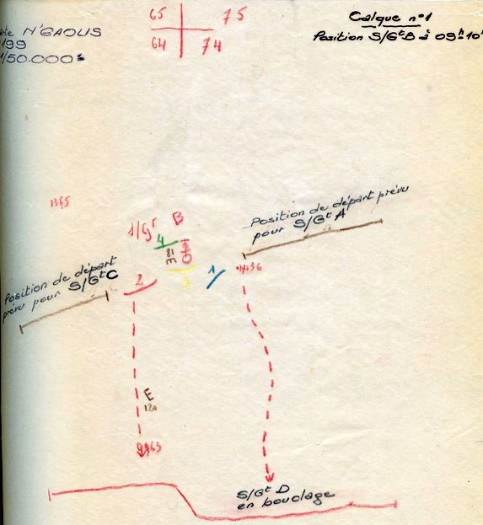 de N'GAOUS
199
1/50.000è
65 75
64 74
Calque n°1
Position S/Gt B à 09h10
1365
Position de départ prévu
pour S/Gt A
B
4
Position de départ
prévu pour S/Gt C
2
3
1
1436
E
120
S/Gt D
en bouclage